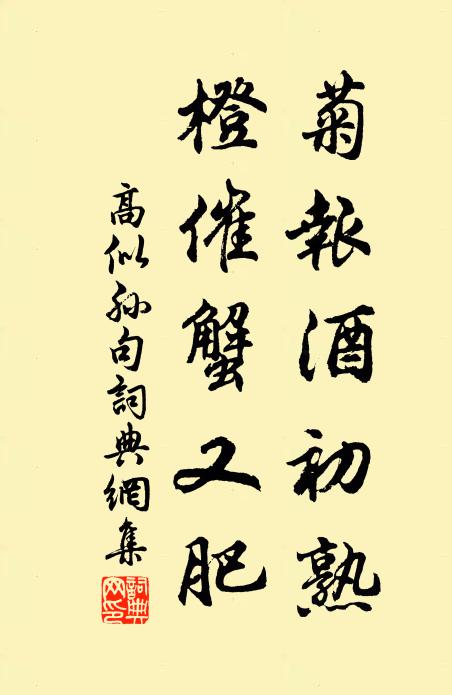 菊報酒初熟
橙催蟹又肥
高似孫句詞典網集
詞典網印